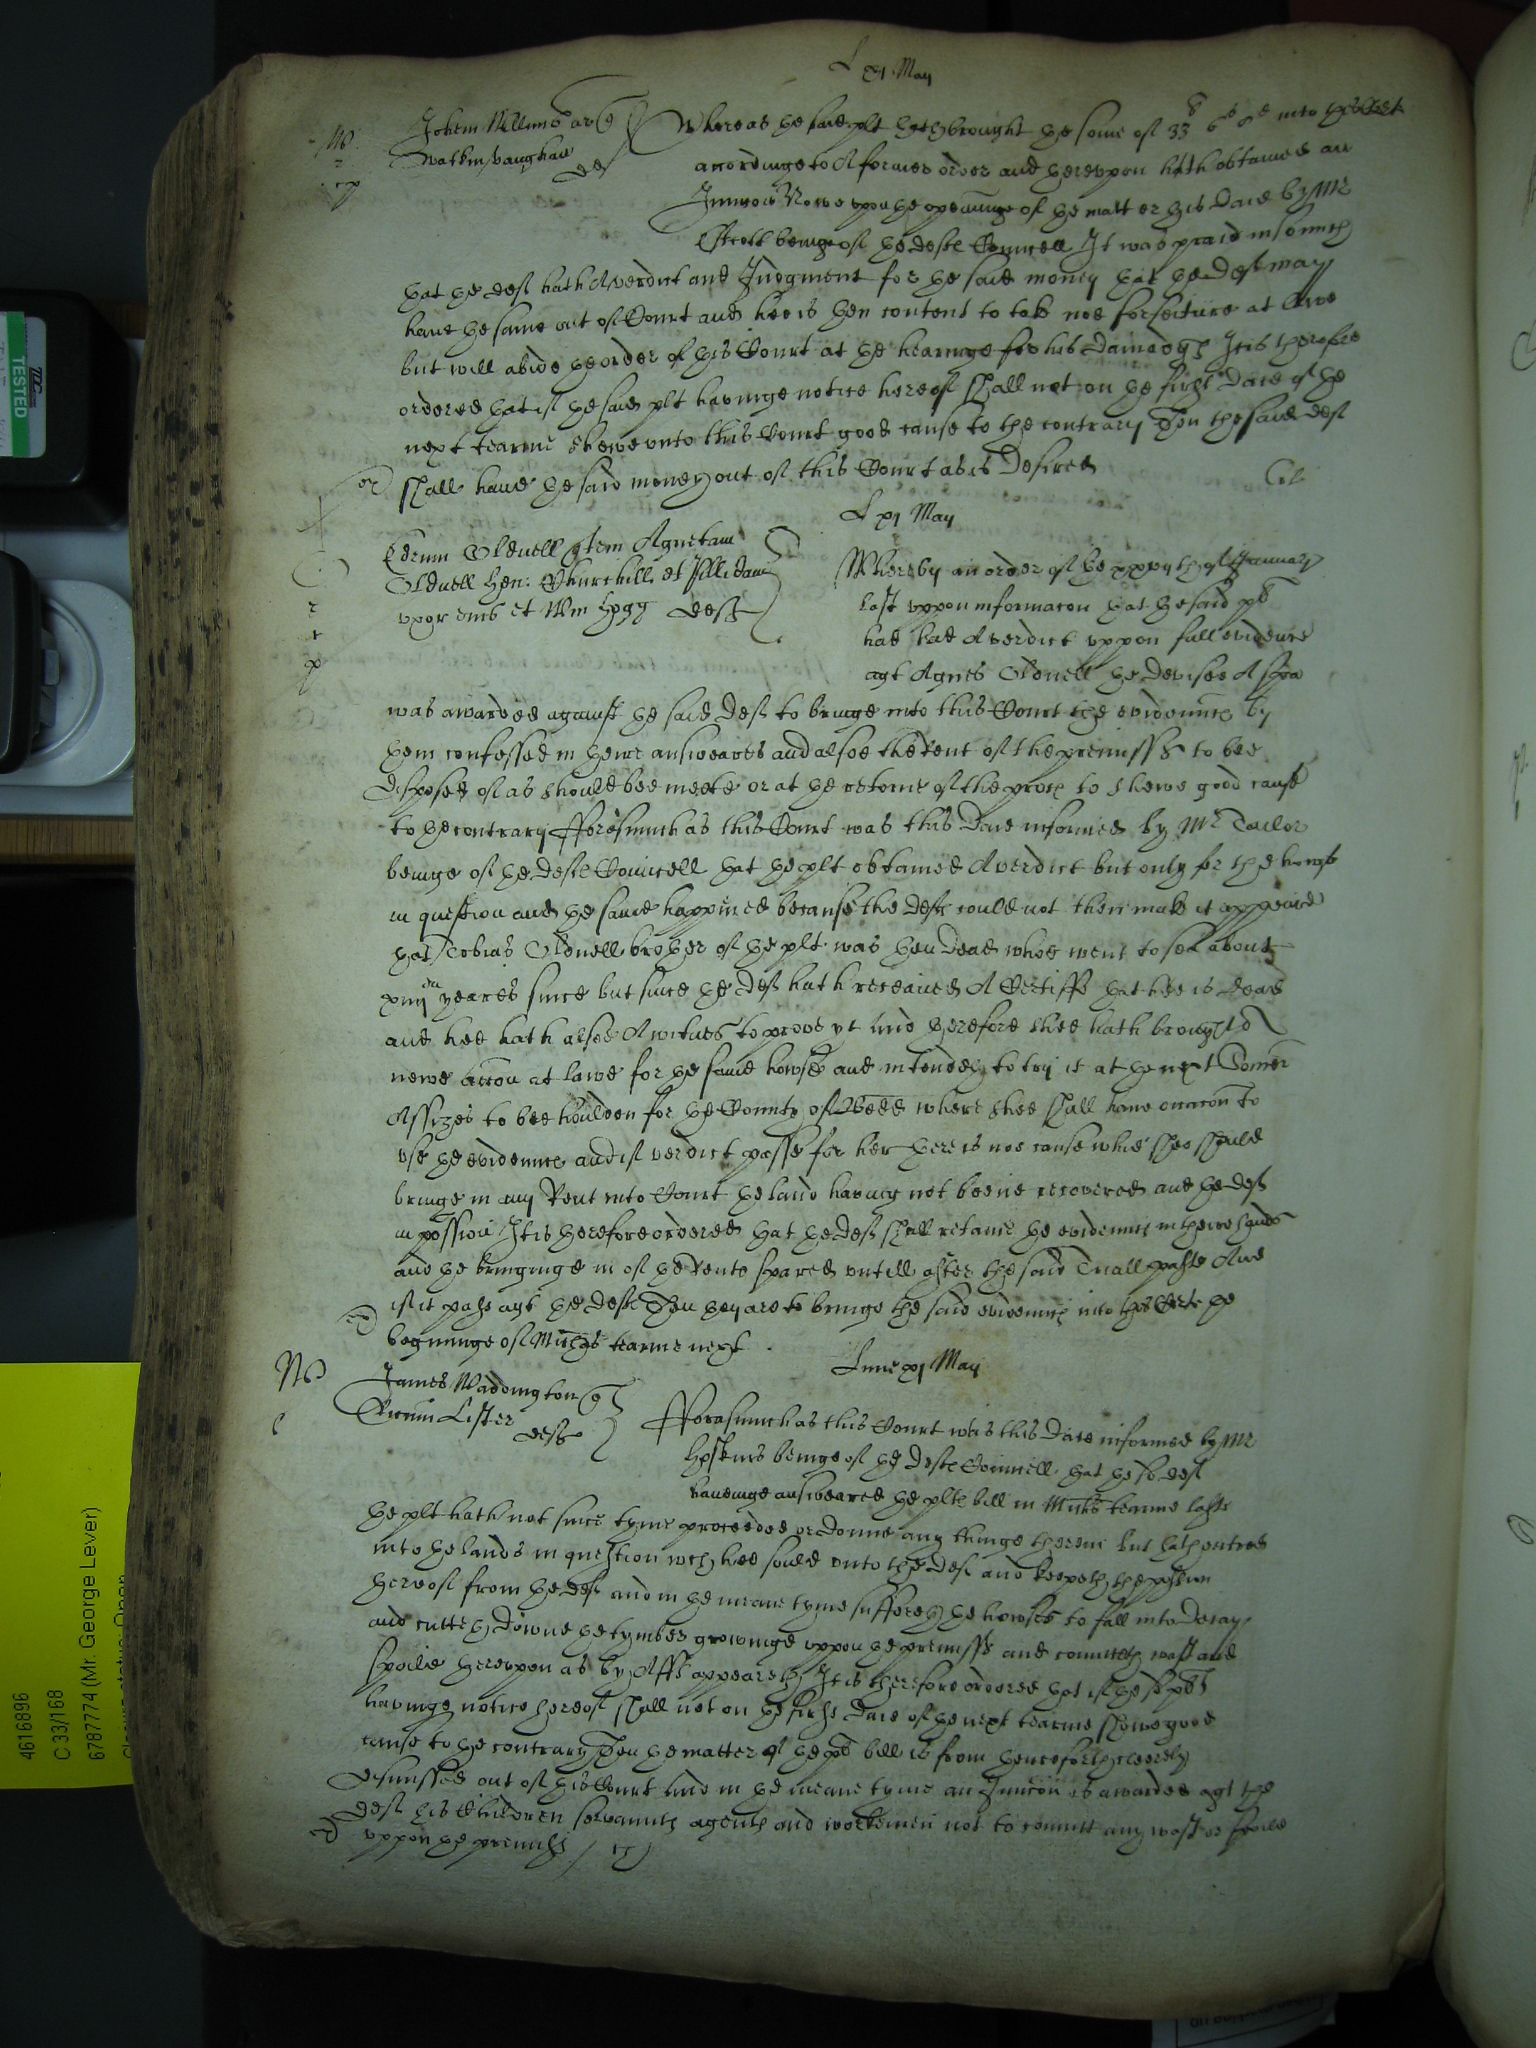 L xj May
John Willims ar q
Watkin Vaughan
def
Whereas the said plt hath brought the some of 33 6 8 into
accordinge to A former order and therevpon hath obtained an
Nowe vpon the openinge of the matter this daie by Mr
beinge of the defte Councell It was praid insomuch
that the def hath A verdict and Judgment for the said money that the def may
haue the same out of Court and hee is then content to take noe forfeiture at lawe
but will abide the order of this Court at the hearinge for his damadgs It is therefore
ordered that if the said plt havinge notice hereof shall not on the first daie of the
next tearme shewe vnto this Court good cause to the contrary Then the said def
shall haue the said money out of this Court as is desired
L xj May
Oldnell q tem Agnetam
Oldnell Hen: Churchill et
vxor eius et Wm deft
Whereby an order of the xxvjth of January
last vppon informacon that the said plt
had had A verdict vppon full evidence
agt Agnes Oldnell the devisee A
was awarded against the said deft to bringe into this Court the evidences by
them confessed in theire answeares and alsoe the Rent of the premisses to bee
disposed of as should bee meete or at the retorne of the proces to shewe good cause
to the contrary Fforasmuch as this Court was this daie informed by Mr Tailor
beinge of the defte Councell that the plt obtained A verdict but only for the howse
in question and the same happined because the defte could not then make it appeare
that Tobias Oldnell brother of the plt was then dead whoe went to sea about
yeares since but since the deft hath receaved A Certiff that hee is dead
and hee hath alsoe A witnes to prove yt And therefore shee hath brought A
newe accon at lawe for the same howse and intendeth to try it at the next Somer
Assizes to bee houlden for the County of where shee shall haue occacon to
vse the evidence and if verdict passe for her there is noe cause whie shee should
bringe in any Rent into Court the land having not beene recovered and the deft
in possion It is therefore ordered that the deft shall retaine the evidence in theire hands
and the bringinge in of the Rents spared vntill after the said Triall paste And
if it passe agt the defte Then they are to bringe the said evidences into this Courte the
begininge of Michas tearme next
Lune xj May
James Waddington q
Lister
deft
Fforasmuch as this Court was this daie informed by Mr
Hoskins beinge of the defte Councell that the sd deft
haveinge answeared the plte bill in Michs tearme laste
the plt hath not since tyme proceeded or donne any thinge therein but hath entred
into the lands in question wch hee sould vnto the def and keepeth the possion
thereof from the def and in the meane tyme suffereth the howses to fall into decay
and cutteth downe the tymber growinge vppon the premisss and comitteth wast and
spoile therevpon as by Afft appeareth It is therefore ordered that if the sd plt
havinge notice hereof shall not on the first daie of the next tearme shewe good
cause to the contrary Then the matter of the plt bill is from henceforth cleerely
dismissed out of this Court And in the meane tyme an Juncon is awarded agt the
def his Children servaunts agents and workemen not to comitt any wast or spoile
vppon the premisss
TESTED
4616896
C 33/168
6787774 (Mr. George Lever)